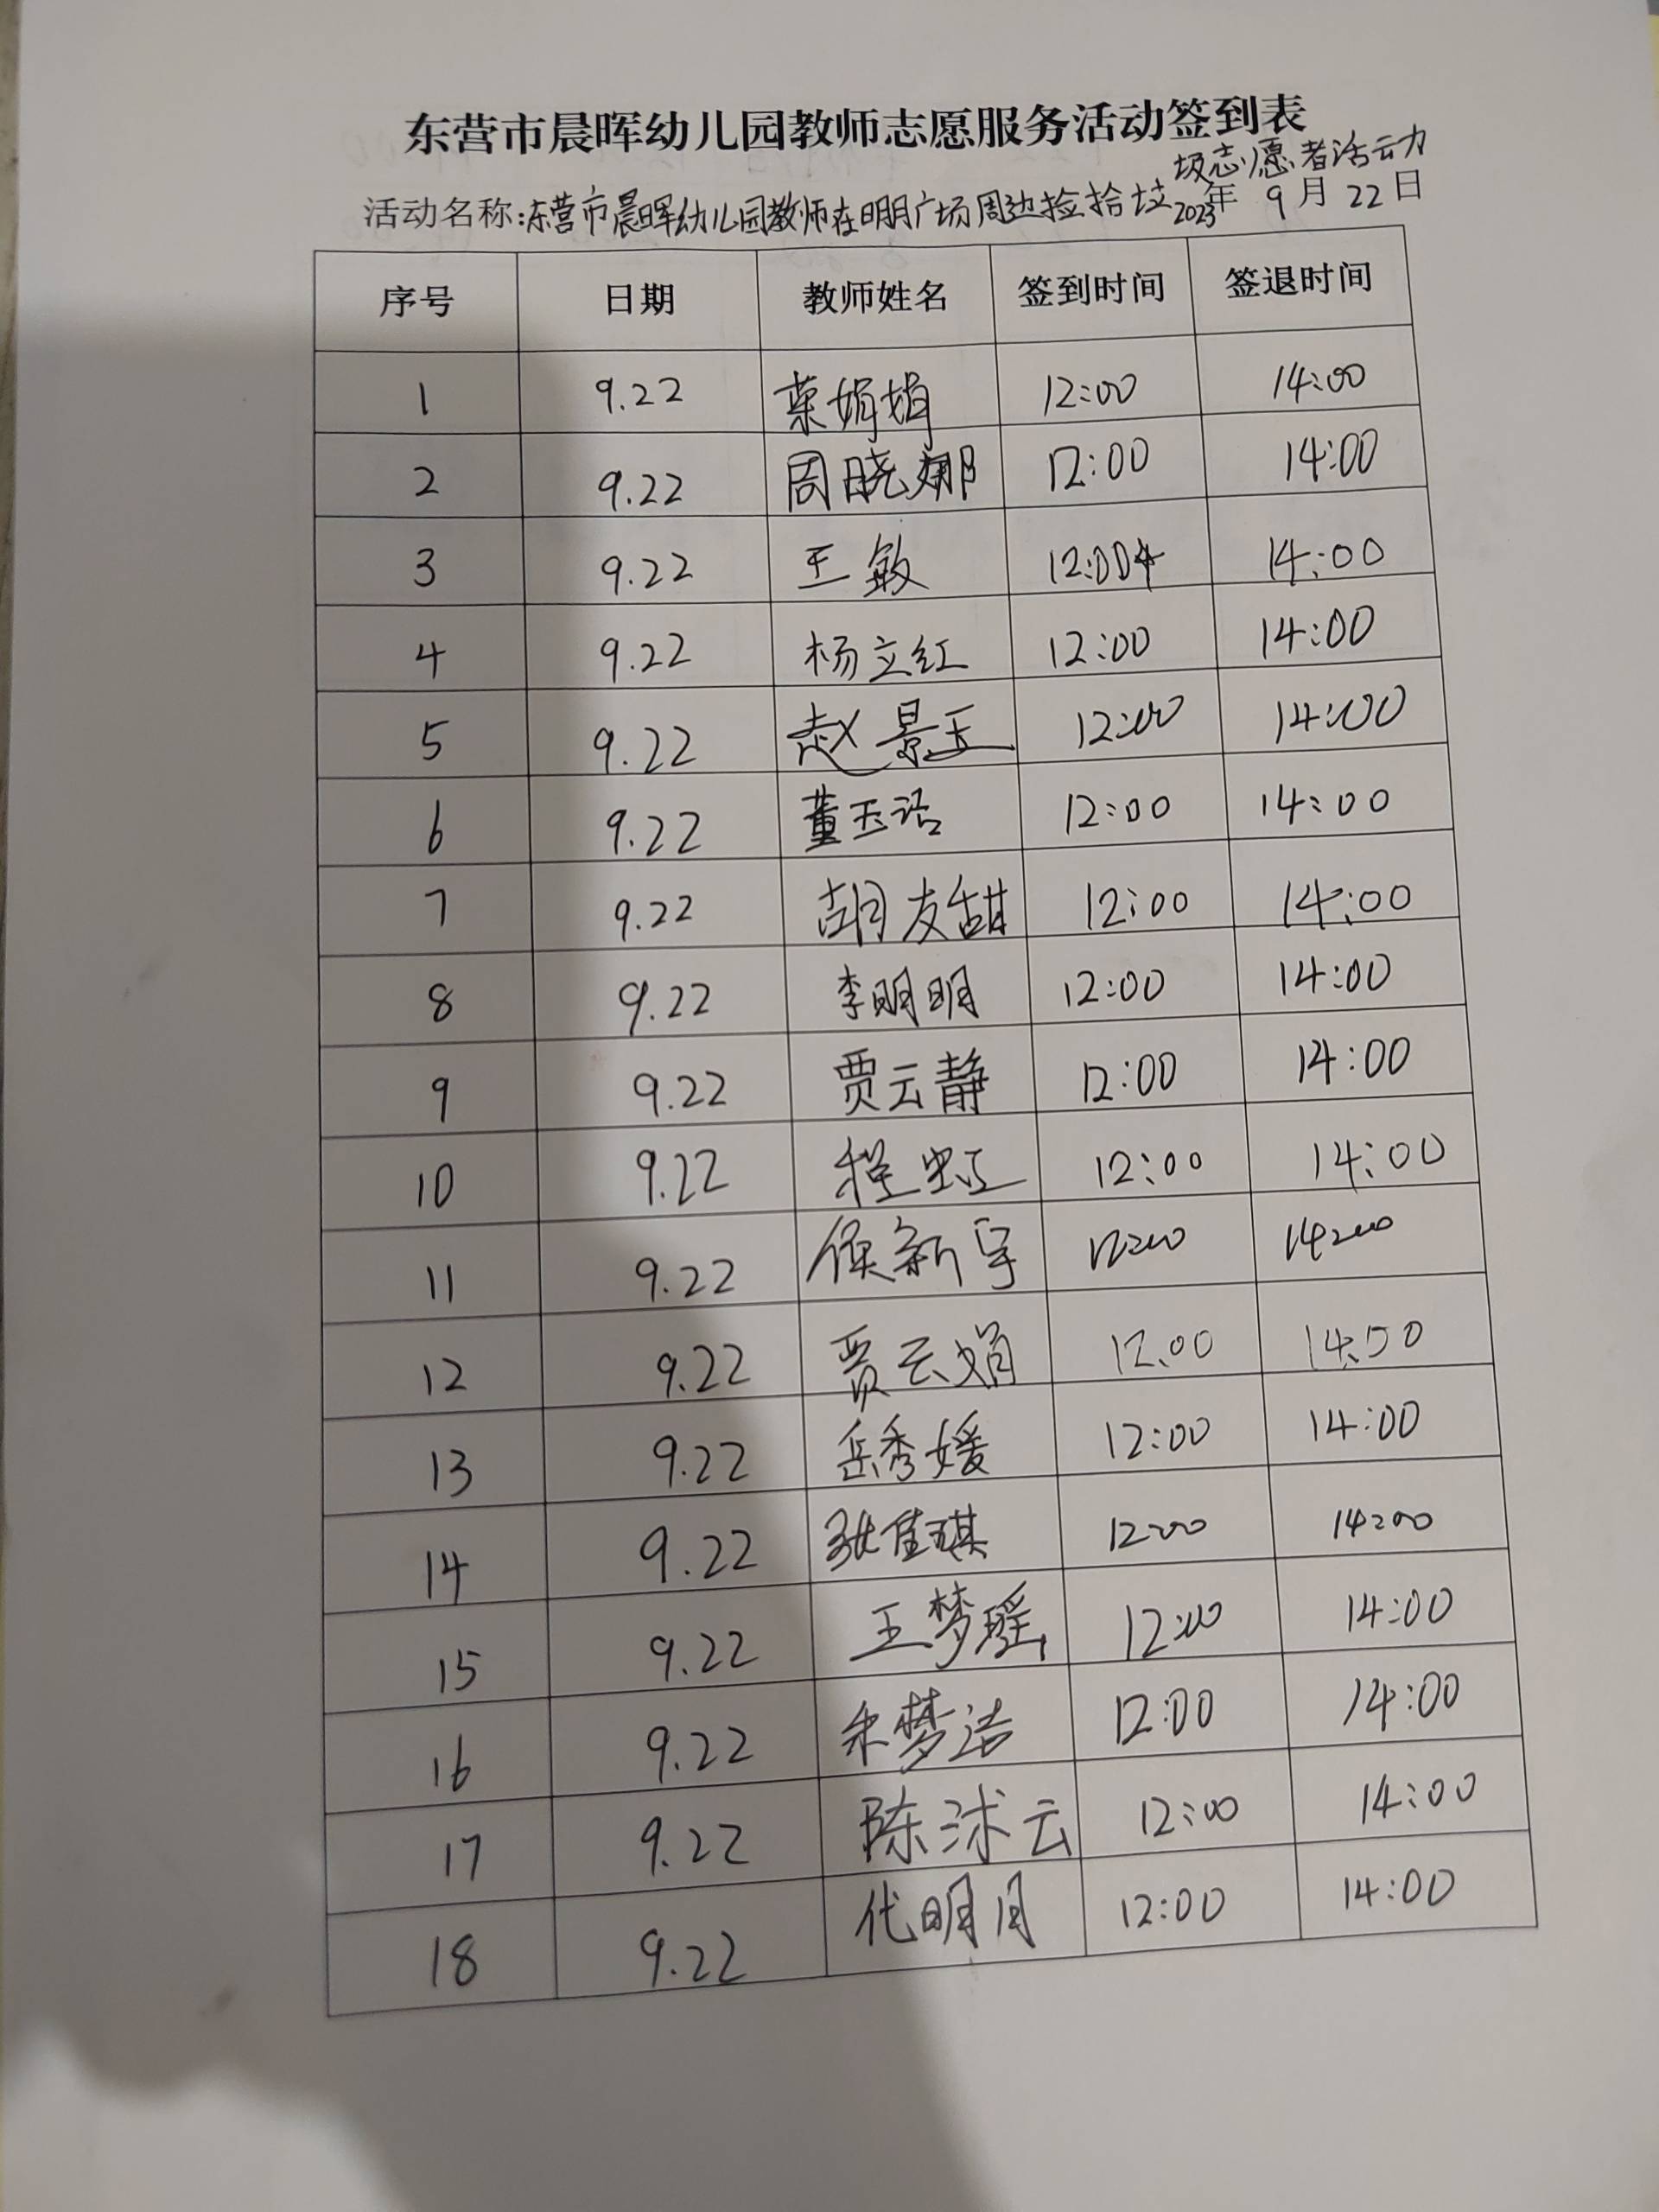 东营市晨晖幼儿园教师志愿服务活动签到表
圾志愿者活动
活动名称:东营市晨晖幼儿园教师在明月广场周边捡拾垃 2023年 9月22日
序号 日期 教师姓名 签到时间 签退时间
1 9.22 娟娟 12:00 14:00
2 9.22 周晓娜 12:00 14:00
3 9.22 王敏 12:00 14:00
4 9.22 杨立红 12:00 14:00
5 9.22 赵景玉 12:00 14:00
6 9.22 董玉洁 12:00 14:00
7 9.22 胡友甜 12:00 14:00
8 9.22 李明明 12:00 14:00
9 9.22 贾云静 12:00 14:00
10 9.22 程虹 12:00 14:00
11 9.22 侯新宇 12:00 14:00
12 9.22 贾云娟 12:00 14:00
13 9.22 岳秀媛 12:00 14:00
14 9.22 张佳琪 12:00 14:00
15 9.22 王梦瑶 12:00 14:00
16 9.22 朱梦洁 12:00 14:00
17 9.22 陈沭云 12:00 14:00
18 9.22 代明月 12:00 14:00